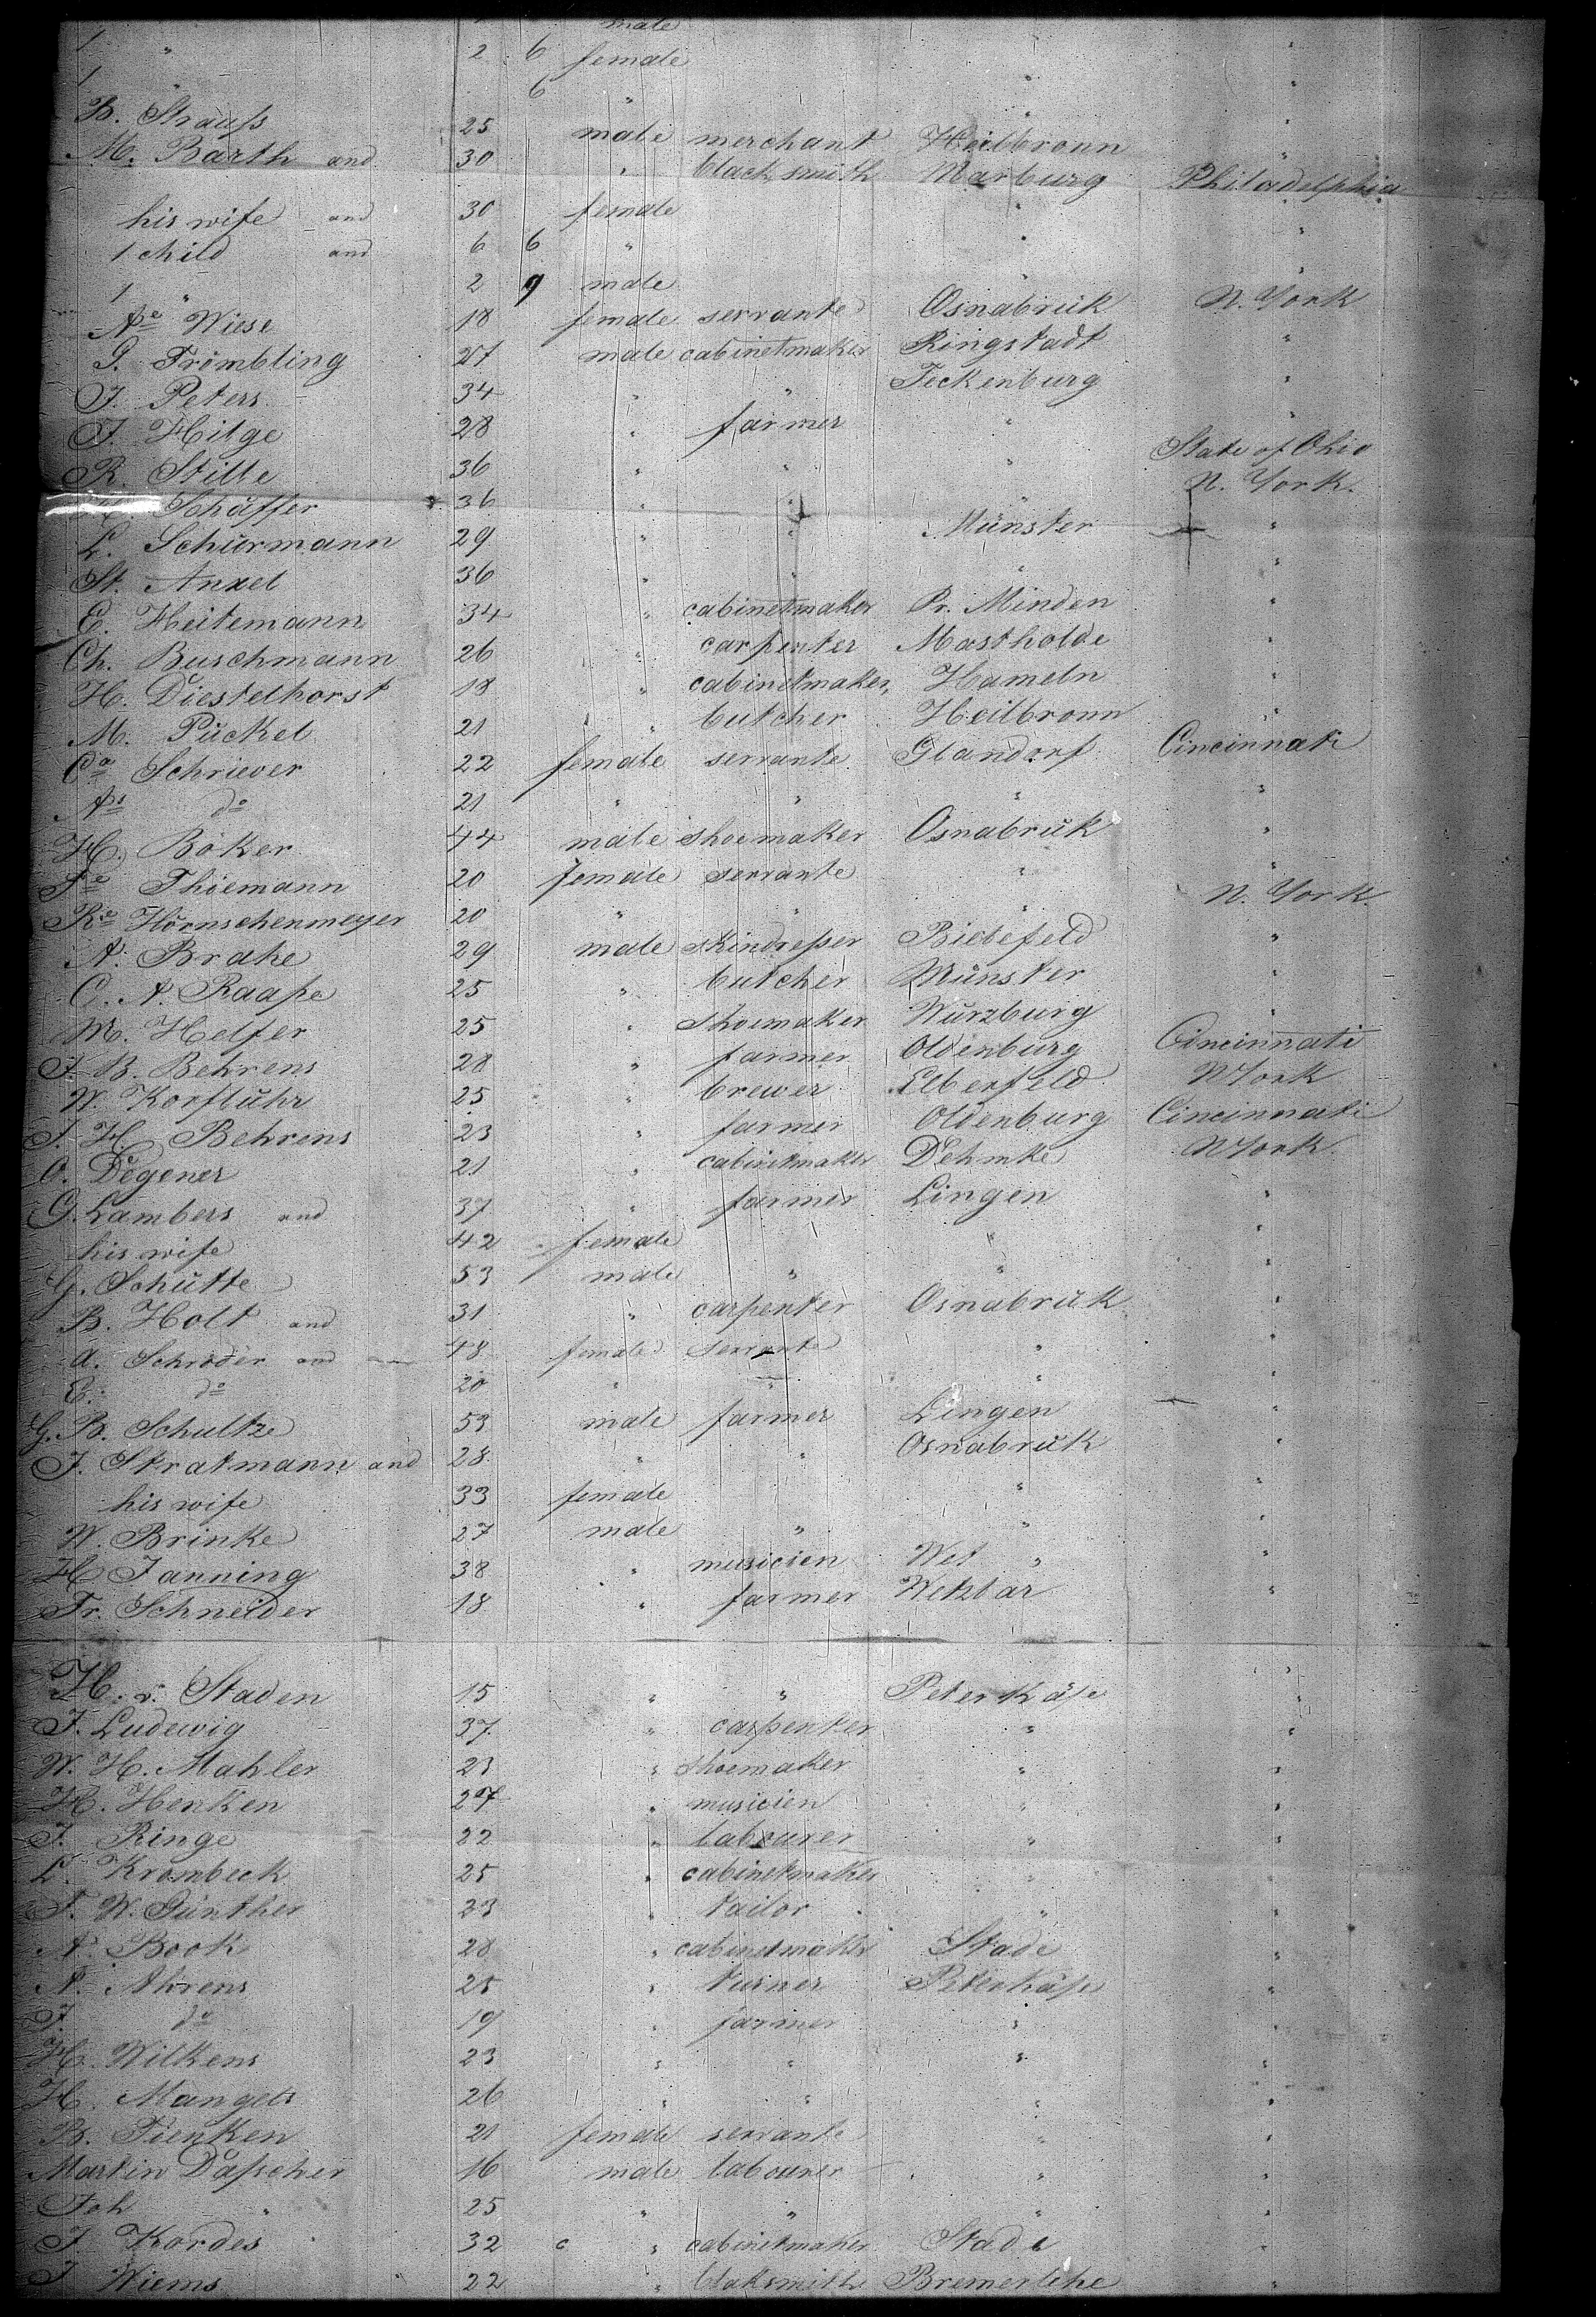 male
1 " 2 6 female " "
1 6 " " "
B. Strauß 25 male merchant Heilbronn "
M. Barth and 30 " blacksmith Marburg Philadelphia
his wife and 30 female " "
1 child and 6 6 " " "
1 " 2 9 male " "
Ae Wiese 18 female servante Osnabrük N. York
G. Trömbling 27 male cabinetmaker Ringstadt "
J. Peters 34 " " Teckenburg "
F. Hilge 28 " farmer " "
R. Stille 36 " " " State of Ohio
Schäffer 36 " " " N. York.
L. Schürmann 29 " " Münster "
St. Anxel 36 " " " "
E. Heitemann 34 " cabinetmaker Pr. Minden "
Ch. Buschmann 26 " carpenter Mastholde "
H. Diestelhorst 18 " cabinetmaker, Hameln "
M. Pückel 21 " butcher Heilbronn "
Ca Schriever 22 female servante Glandorf Cincinnati
As do 21 " " " "
H. Böker 44 male shoemaker Osnabrük "
Fe Thiemann 20 female servante " "
Re Hörnschenmeyer 20 " " " N. York.
A. Brake 29 male skindreßer Bielefeld "
C. A. Raaße 25 " butcher Münster "
M. Helfer 25 " shoemaker Würzburg "
J. B. Behrens 28 " farmer Oldenburg Cincinnati
W. Korfluhr 25 " brewer Elberfeld NYork
J. H. Behrens 23 " farmer Oldenburg Cincinnati
O. Degener 21 " cabinetmaker Dehmke NYork.
G. Lambers and 37 " farmer Lingen "
his wife 42 female " "
G. Schütte 53 male " " "
B. Holt and 31 " carpenter Osnabrük "
A. Schröder and 48 female servante " "
E. do 20 " " " "
G. B. Schultze 53 male farmer Lingen "
J. Stratmann and 28 " " Osnabrük "
his wife 33 female " "
W. Brinke 27 male " " "
H Janning 38 " musicien Wet " "
Fr. Schneider 18 " farmer Wetzlar "
H. v. Staden 15 " " Peterkäße "
F. Ludewig 37 " carpenter " "
W. H. Mahler 23 " shoemaker " "
H. Henken 27 " musicien " "
J. Ringe 22 " labourer " "
L. Krombeck 25 " cabinetmaker " "
F. W. Günther 23 " tailor " "
A. Book 28 " cabinetmaker Stade "
A. Ahrens 25 " turner Peterkäße "
J. do 19 " farmer " "
H. Wilkens 23 " " " "
H. Mangels 26 " " " "
B. Tienken 21 female servante " "
Martin Daßcher 16 male labourer " "
Joh " 25 " " " "
J Kordes 32 " cabinetmaker Stade "
J Wiems 22 " blaksmith Bremerlehe "